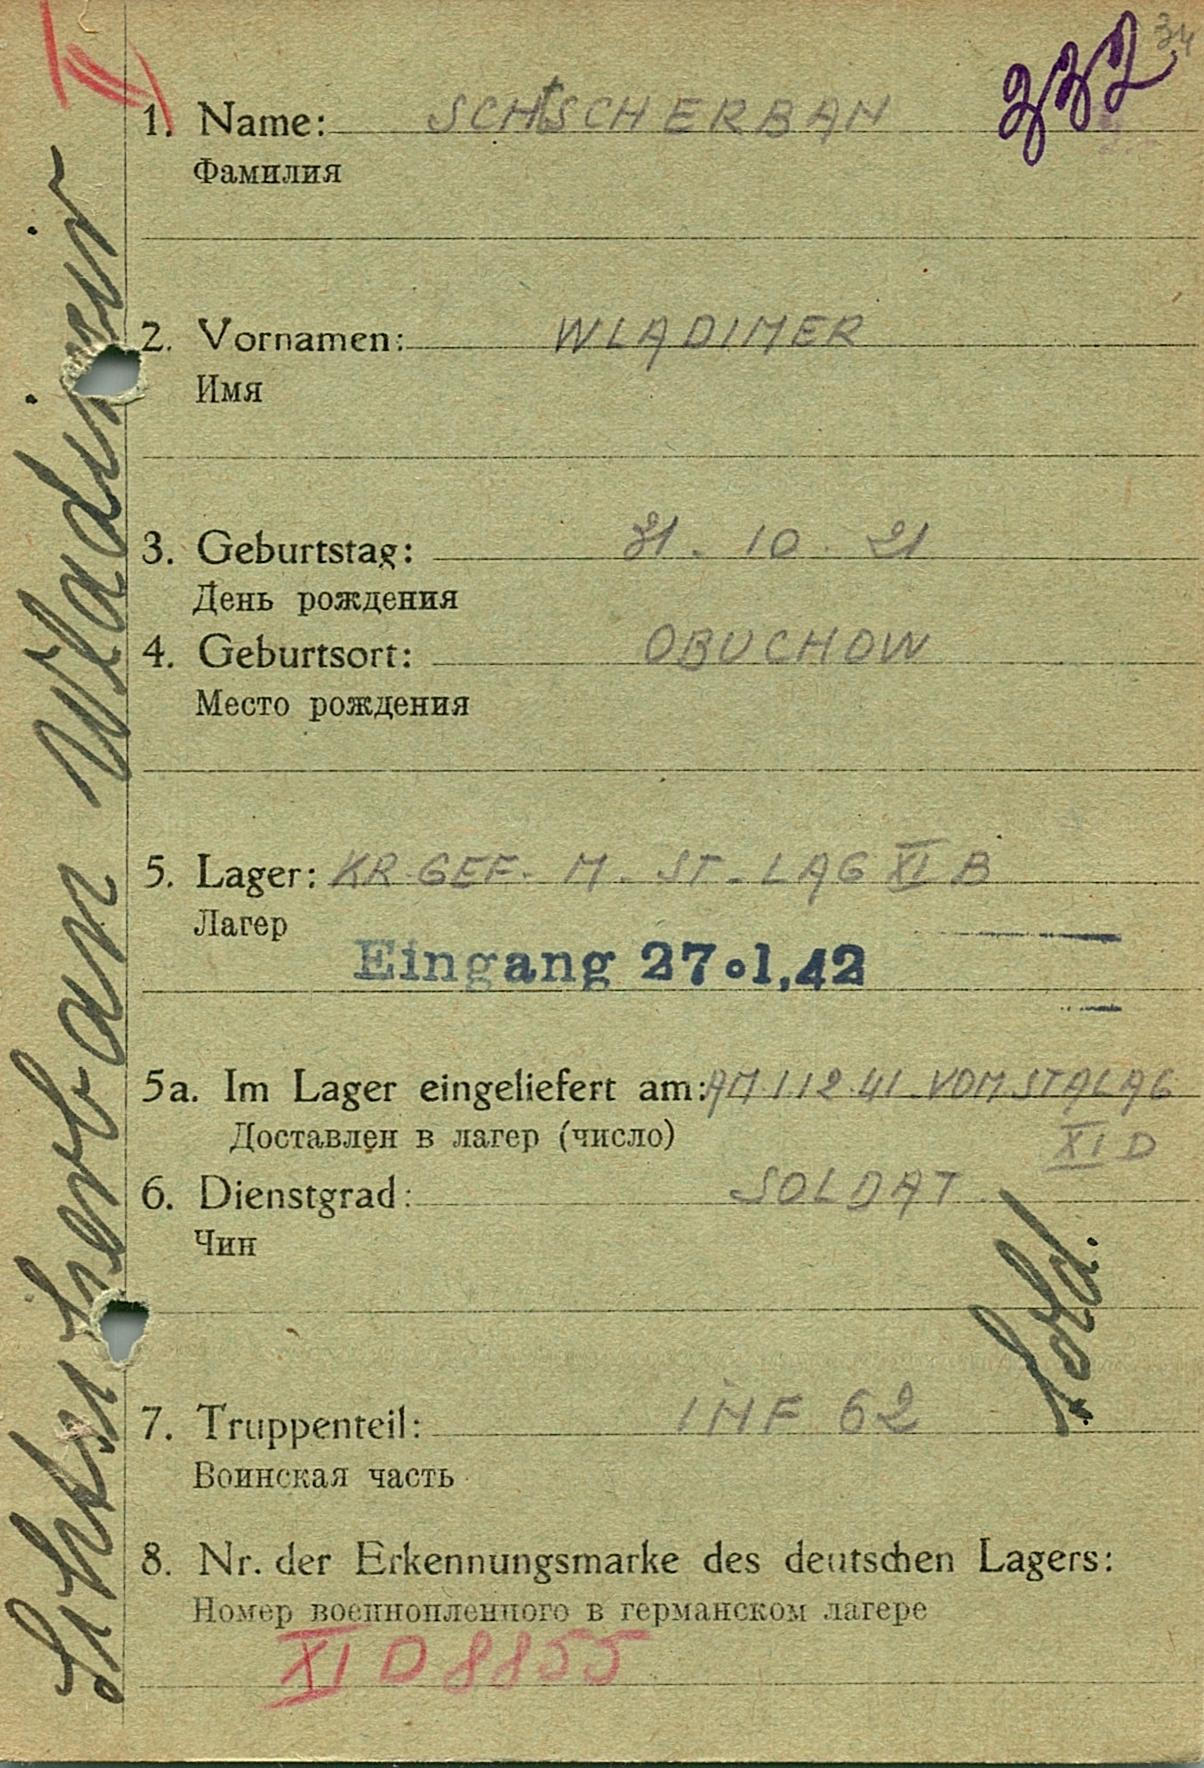 34
332
II
1. Name: SCHTSCHERBAN
Фамилия
2. Vornamen: WLADIMER
Имя
3. Geburtstag: 31. 10. 21
День рождения
4. Geburtsort: OBUCHOW
Место рождения
5. Lager: KR. GEF. M. ST-LAG XI B
Лагер
Eingang 27.1.42
5a. Im Lager eingeliefert am: AM 1.12.41. VOM STALAG
XI D
Доставлен в лагер (число)
6. Dienstgrad: SOLDAT
Чин
Sold.
7. Truppenteil: INF 62
Воинская часть
8. Nr. der Erkennungsmarke des deutschen Lagers:
Номер военнопленного в германском лагере
XI D 8855
Schtscherban Wladimir